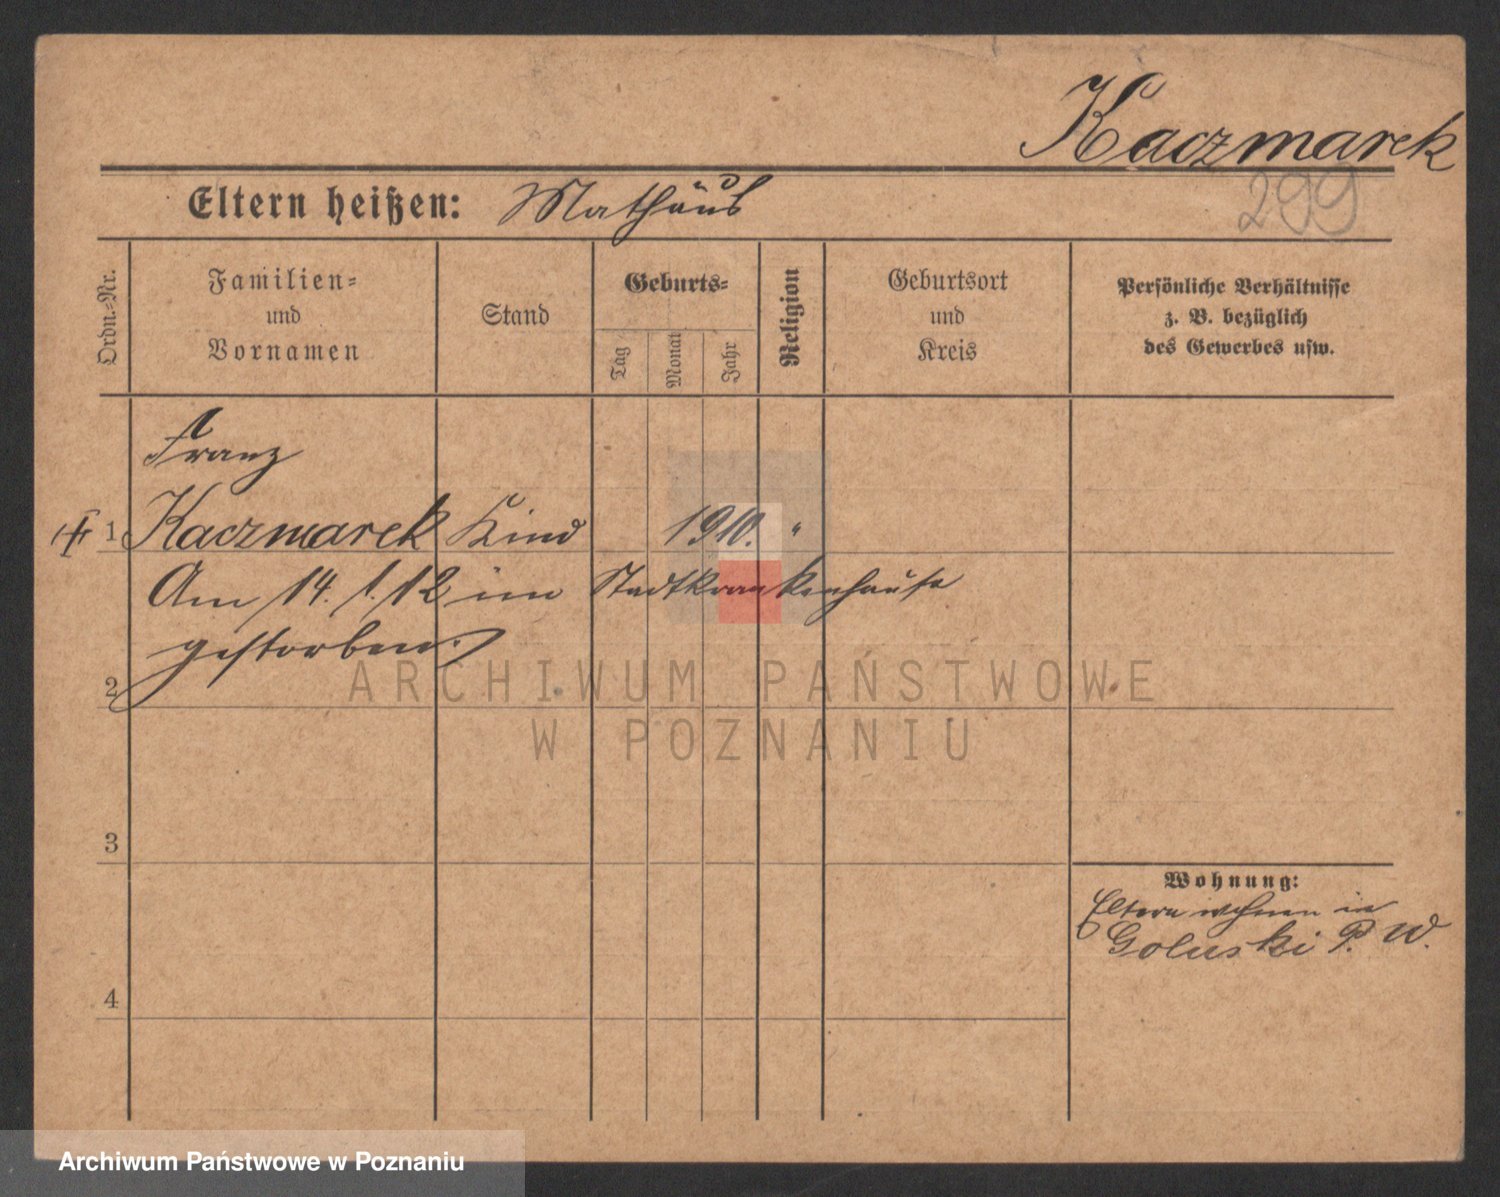 Kaczmarek
299
Eltern heißen: Mathäus
Ordn.-Nr.
Familien- und Vornamen
Stand
Geburts-
Tag
Monat
Jahr
Religion
Geburtsort und Kreis
Persönliche Verhältnisse z. B. bezüglich des Gewerbes usw.
Franz
1 Kaczmarek Kind 1910. "
Am 14. 1. 12 im Stadtkrankenhause
gestorben.
2
3
4
Wohnung:
Eltern wohnen in
Goluski P. W.
ARCHIWUM PAŃSTWOWE
W POZNANIU
Archiwum Państwowe w Poznaniu